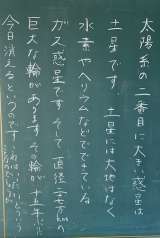 太陽系の二番目に大きい惑星は
土星です 土星には大地はなく
水素やヘリウムなどでできている
ガス惑星です そして 直径二十七万kmの
巨大な輪があります その輪が 十五年
今日消えるというのです